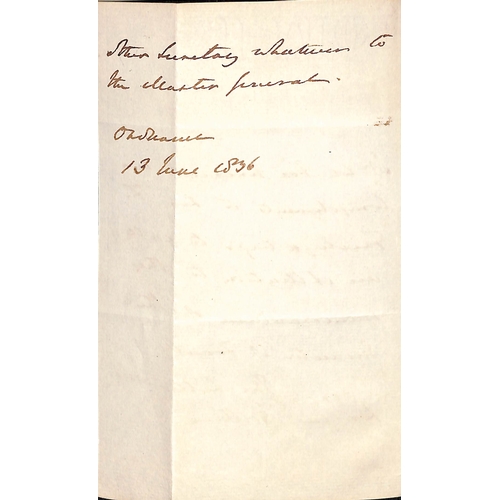 other Secretary whatever to
the Master General.
Ordnance
13 June 1836